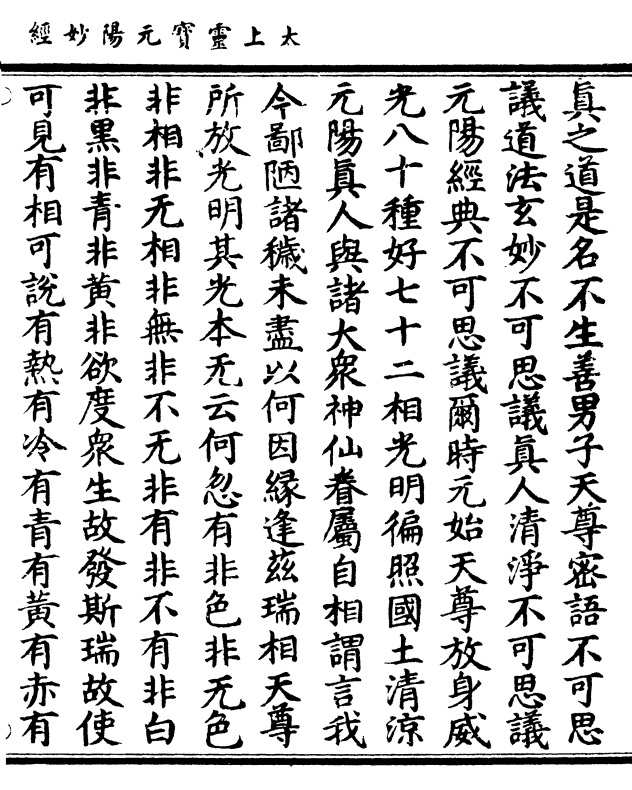 太上靈寶元陽妙經
眞之道是名不生善男子天尊密語不可思
議道法玄妙不可思議眞人清淨不可思議
元陽經典不可思議爾時元始天尊放身威
光八十種好七十二相光明徧照國土清涼
元陽眞人與諸大衆神仙眷屬自相謂言我
今鄙陋諸穢未盡以何因緣逢茲瑞相天尊
所放光明其光本无云何忽有非色非无色
非相非无相非無非不无非有非不有非白
非黑非青非黄非欲度衆生故發斯瑞故使
可見有相可說有熱有冷有青有黄有赤有